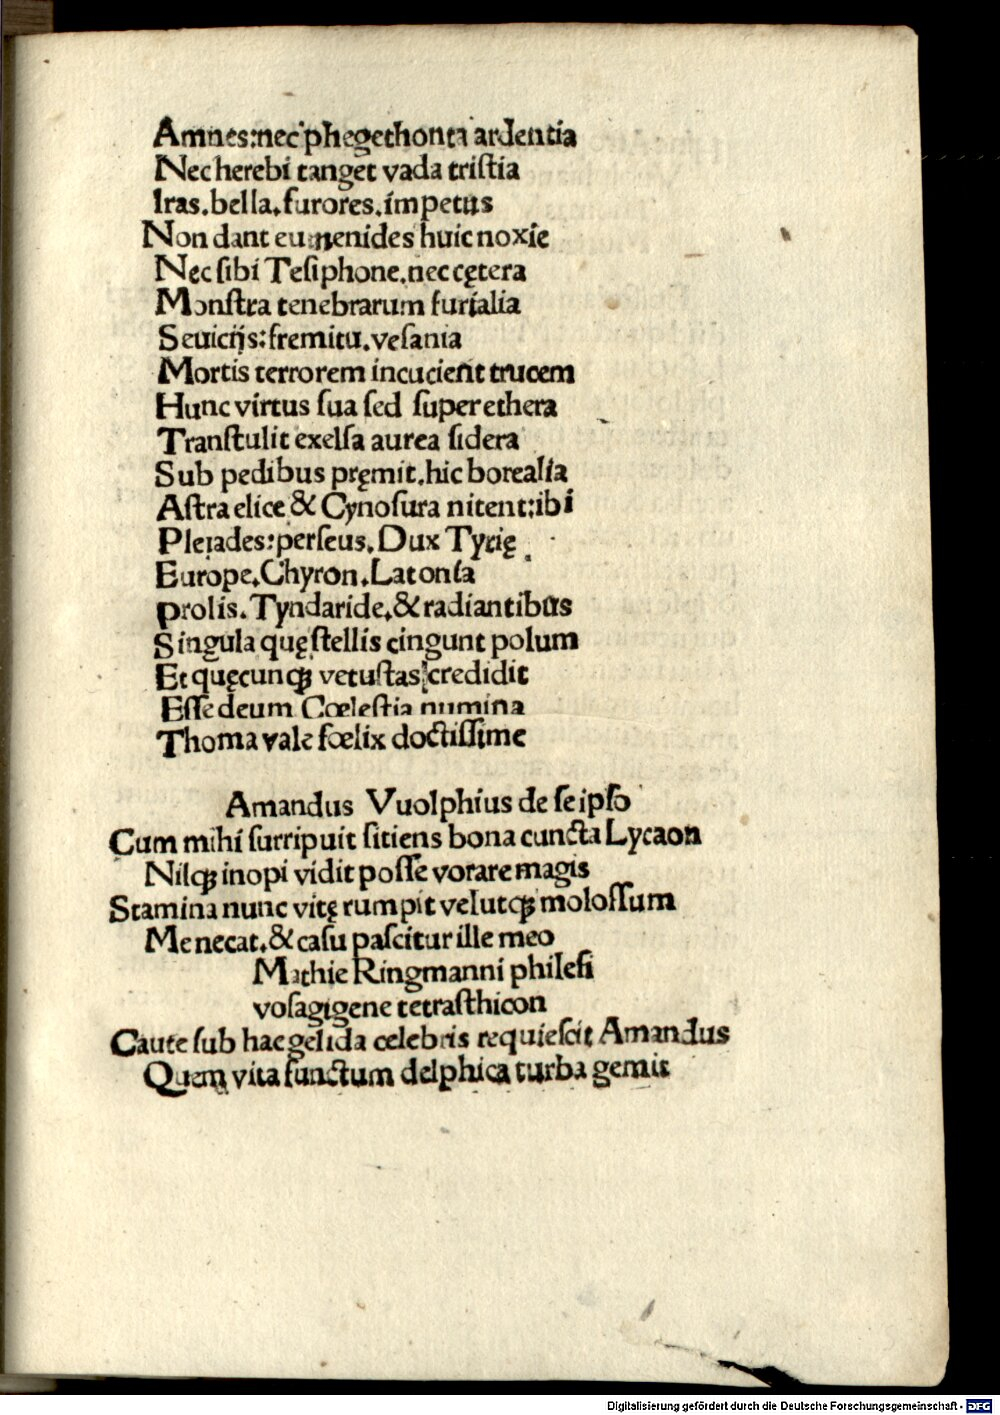 Amnes:nec phegethonta ardentia
Nec herebi tanget vada triſtia
Iras.bella.furores.impetus
Non dant eumenides huic noxie
Nec ſibi Teſiphone.nec cętera
Monſtra tenebrarum furialia
Seuicijs:fremitu.veſania
Mortis terrorem incucient trucem
Hunc virtus ſua ſed ſuper ethera
Tranſtulit exelſa aurea ſidera
Sub pedibus pręmit.hic borealia
Aſtra elice & Cynoſura nitent:ibi
Pleiades:perſeus.Dux Tyrię
Europe.Chyron.Latonia
prolis.Tyndaride.& radiantibus
Singula quę ſtellis cingunt polum
Et quęcunqꝫ vetuſtas credidit
Eſſe deum Cœleſtia numina
Thoma vale fœlix doctiſſime
Amandus Vuolphius de ſeipſo
Cum mihi ſurripuit ſitiens bona cuncta Lycaon
Nilqꝫ inopi vidit poſſe vorare magis
Stamina nunc vitę rumpit velutqꝫ moloſſum
Me necat.& caſu paſcitur ille meo
Mathie Ringmanni phileſi
voſagigene tetraſthicon
Caute ſub hac gelida celebris requieſcit Amandus
Quem vita functum delphica turba gemit
Digitalisierung gefördert durch die Deutsche Forschungsgemeinschaft - DFG